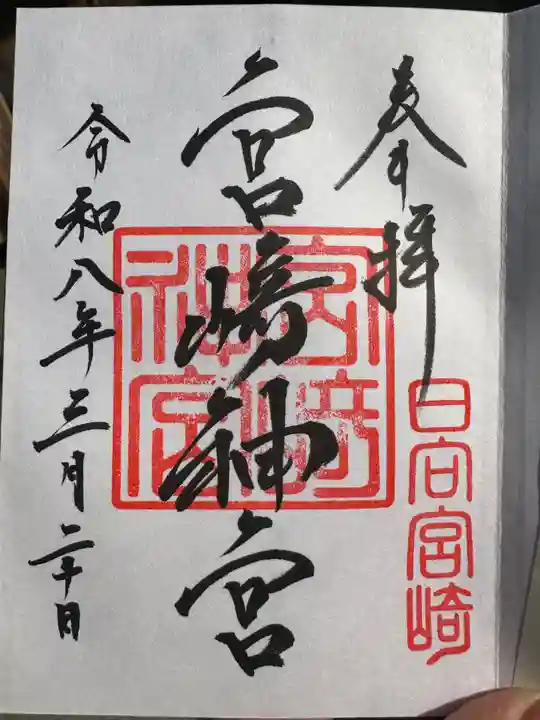 奉拝
日向宮崎
宮崎神宮
宮崎神宮
令和八年三月二十日